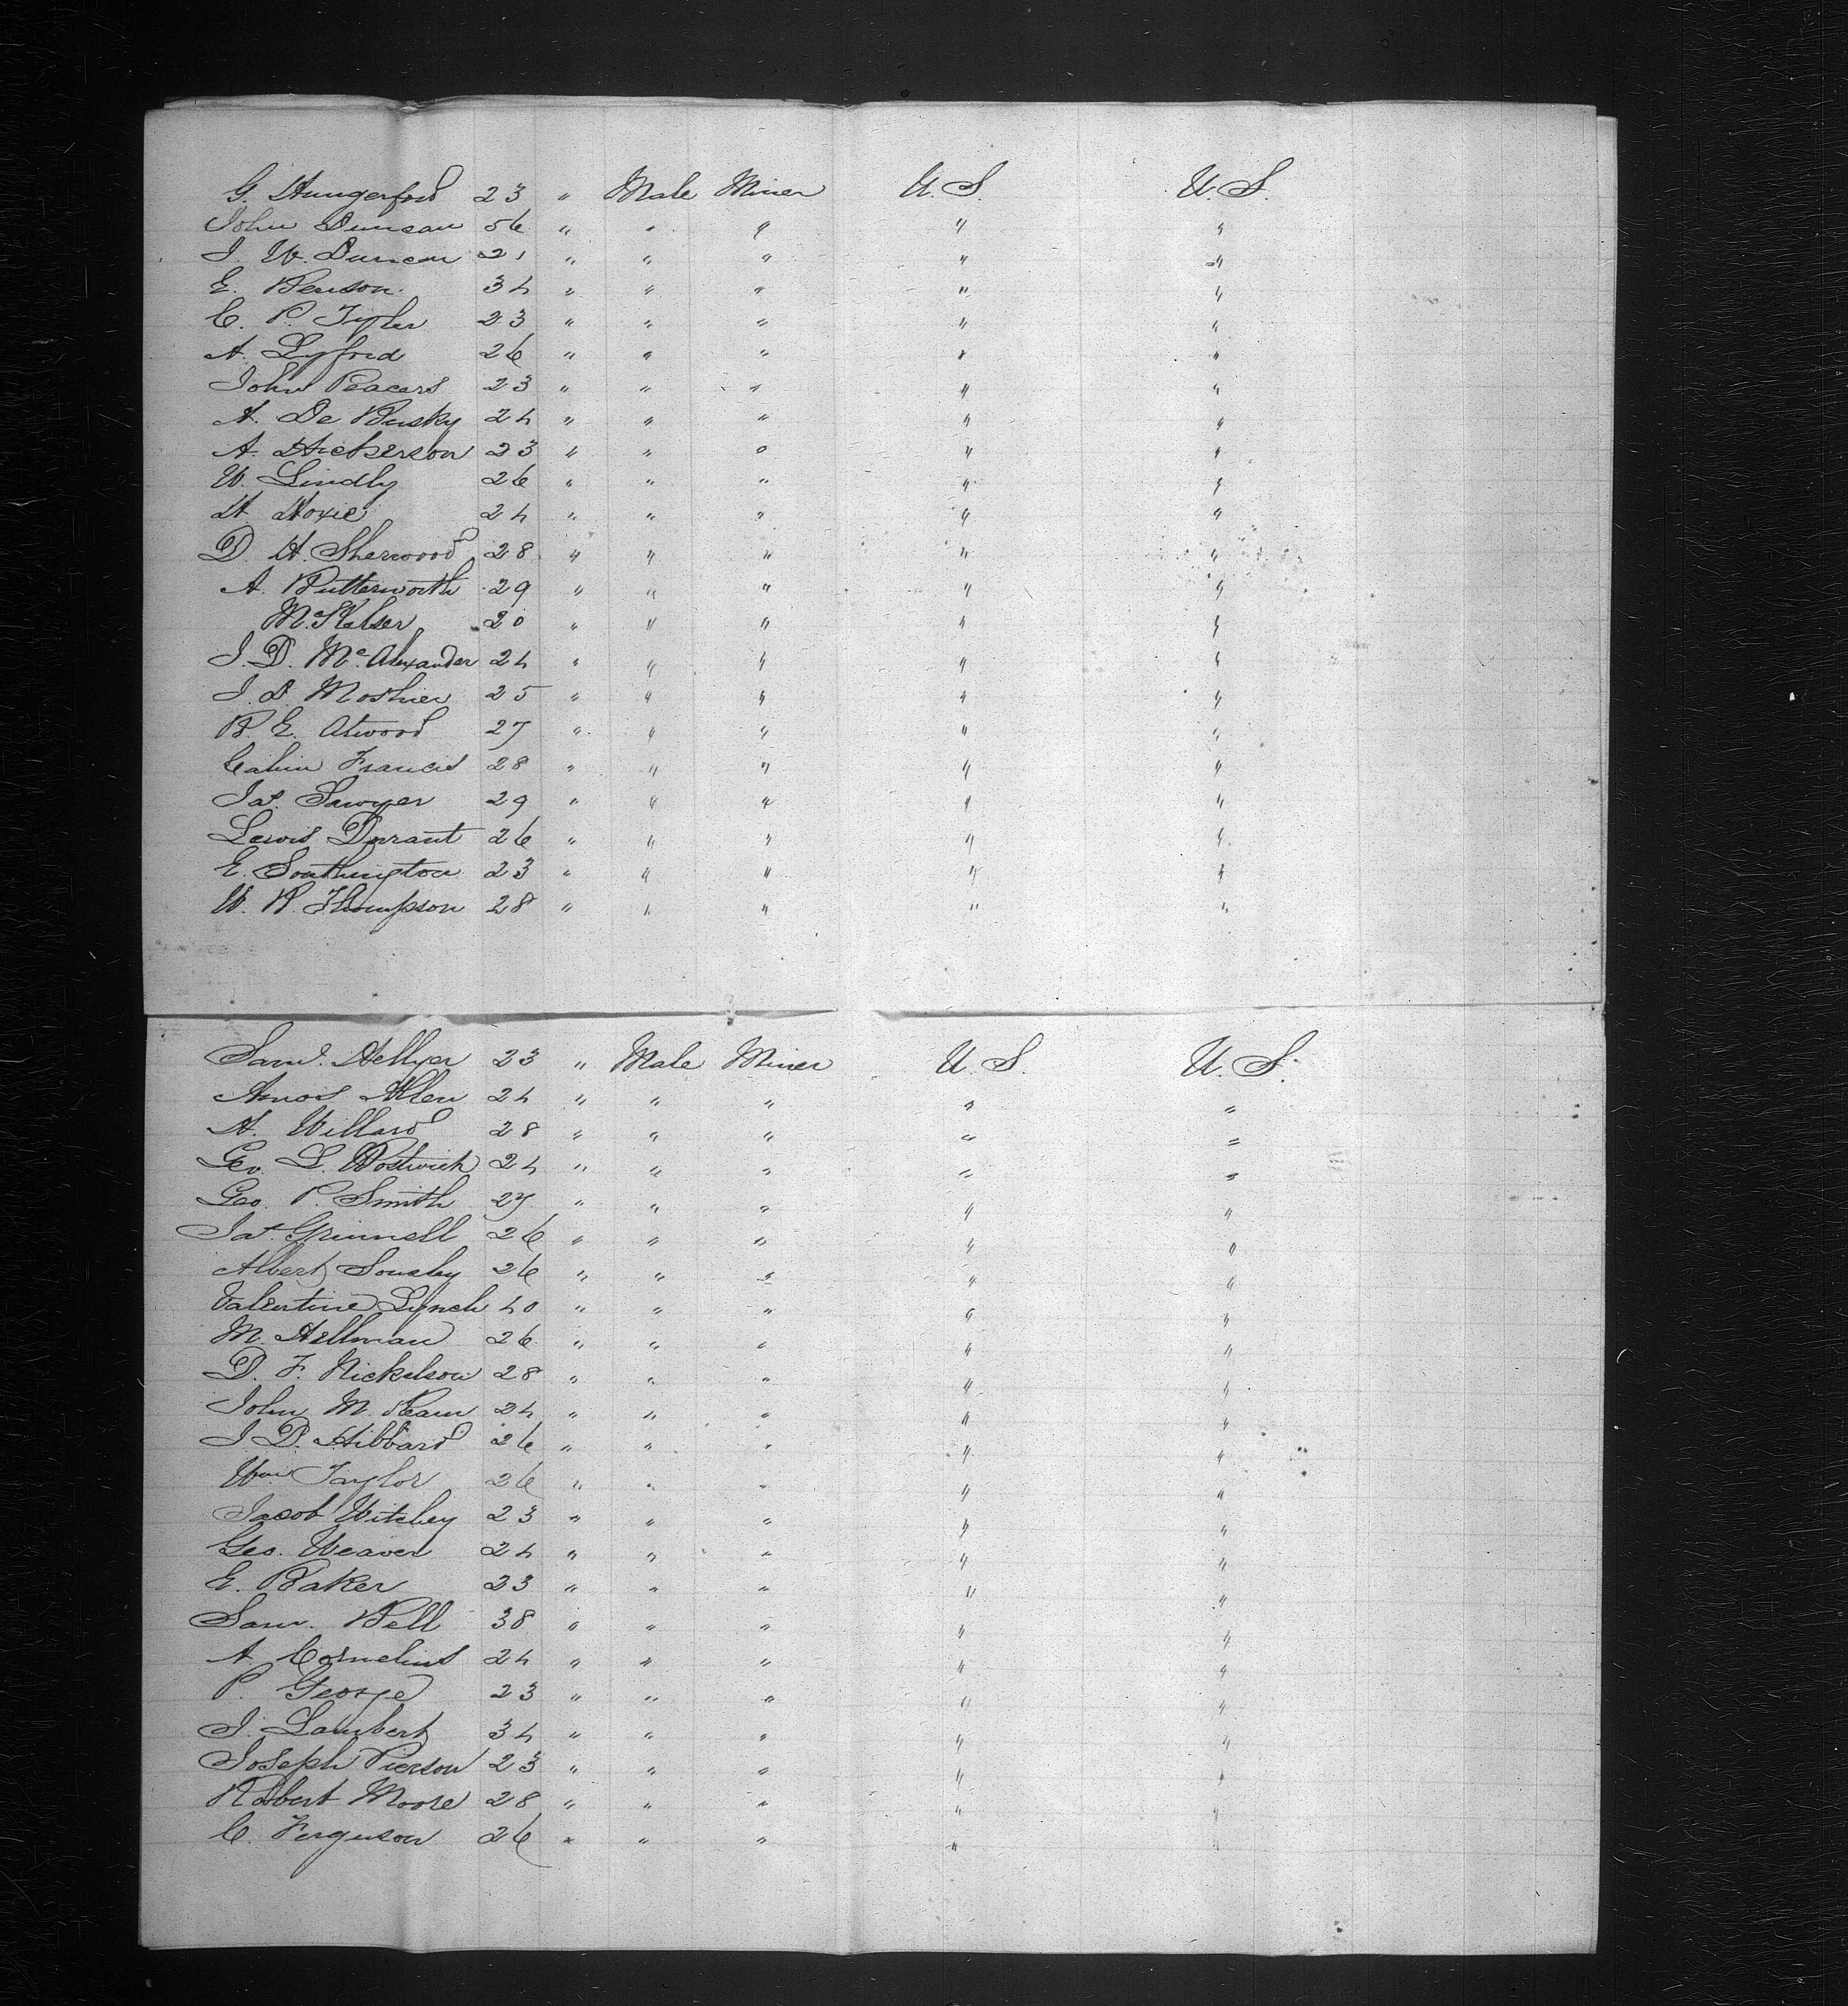 G. Hungerford 23 " Male Miner U.S. U.S.
John Duncan 56 " " " " "
J. W. Duncan 21 " " " " "
E. Benson 34 " " " " "
C. P. Tyler 23 " " " " "
A. Lyford 26 " " " " "
John Peacers 23 " " " " "
A. De Busky 24 " " " " "
A. Dickerson 23 " " " " "
W. Lindly 26 " " " " "
H. Hoxie 24 " " " " "
D. H. Sherwood 28 " " " " "
A. Butterworth 29 " " " " "
20 " " " " "
J. D. Mc. Alexander 24 " " " " "
J. D. Moshier 25 " " " " "
B. E. Atwood 27 " " " " "
Calvin Francis 28 " " " " "
Jas. Sawyer 29 " " " " "
Lewis Durant 26 " " " " "
E. Southington 23 " " " " "
W. R. Thompson 28 " " " " "
Saml. Hellyer 23 " Male Miner U.S. U.S.
Amos Allen 24 " " " " "
A. Willard 28 " " " " "
Geo. L. Bostwick 24 " " " " "
Geo. P. Smith 27 " " " " "
Jas. Grinnell 26 " " " " "
Albert Sousley 26 " " " " "
Valentine Lynch 40 " " " " "
M. Hellman 26 " " " " "
D. F. Nickelson 28 " " " " "
John M. Ream 24 " " " " "
J. D. Hibbard 26 " " " " "
Wm Taylor 26 " " " " "
Jacob Witchey 23 " " " " "
Geo. Weaver 24 " " " " "
E. Baker 23 " " " " "
Sam. Bell 38 " " " " "
A. Cornelius 24 " " " " "
P. George 23 " " " " "
J. Lambert 34 " " " " "
Joseph Pierson 23 " " " " "
Robert Moore 28 " " " " "
C. Ferguson 26 " " " " "